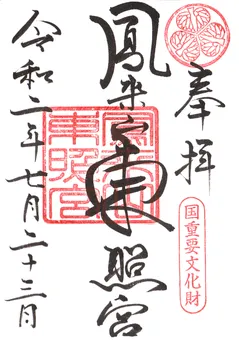 奉拝
国重要文化財
鳳来山東照宮
令和二年七月二十三日